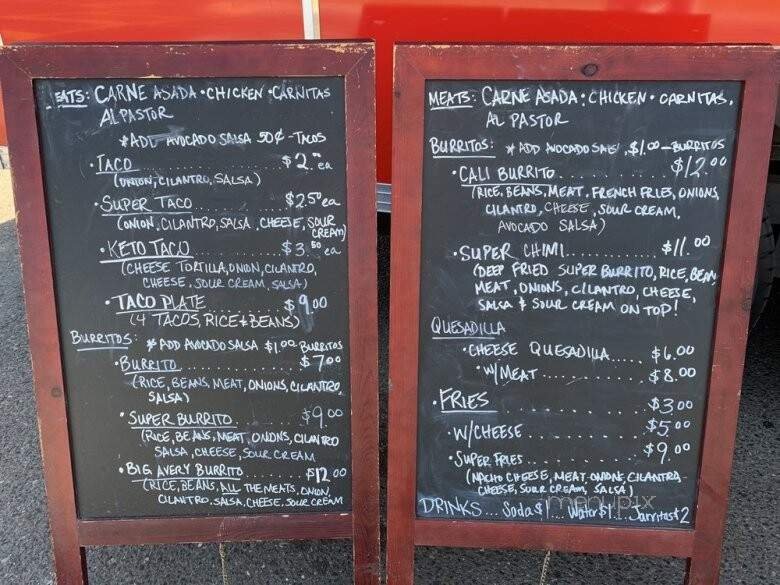 MEATS: CARNE ASADA • CHICKEN • CARNITAS
AL PASTOR
*ADD AVOCADO SALSA 50¢ - TACOS
• TACO ........ $2.00 ea
(ONION, CILANTRO, SALSA)
• SUPER TACO ........ $2.50 ea
(ONION, CILANTRO, SALSA, CHEESE, SOUR
CREAM)
• KETO TACO ........ $3.50 ea
(CHEESE TORTILLA, ONION, CILANTRO,
CHEESE, SOUR CREAM, SALSA)
• TACO PLATE ........ $9.00
(4 TACOS, RICE & BEANS)
BURRITOS: *ADD AVOCADO SALSA $1.00 BURRITOS
• BURRITO ........ $7.00
(RICE, BEANS, MEAT, ONIONS, CILANTRO,
SALSA)
• SUPER BURRITO ........ $9.00
(RICE, BEANS, MEAT, ONIONS, CILANTRO
SALSA, CHEESE, SOUR CREAM
• BIG AVERY BURRITO ........ $12.00
(RICE, BEANS, ALL THE MEATS, ONION,
CILANTRO, SALSA, CHEESE, SOUR CREAM
MEATS: CARNE ASADA • CHICKEN • CARNITAS,
AL PASTOR
BURRITOS: *ADD AVOCADO SALS, $1.00 - BURRITOS
• CALI BURRITO ........ $12.00
(RICE, BEANS, MEAT, FRENCH FRIES, ONIONS,
CILANTRO, CHEESE, SOUR CREAM,
AVOCADO SALSA)
• SUPER CHIMI ........ $11.00
(DEEP FRIED SUPER BURRITO, RICE, BEAN
MEAT, ONIONS, CILANTRO, CHEESE,
SALSA & SOUR CREAM ON TOP!
QUESADILLA
• CHEESE QUESADILLA ..... $6.00
• W/MEAT ........ $8.00
• FRIES ........ $3.00
• W/CHEESE ........ $5.00
• SUPER FRIES ........ $9.00
(NACHO CHEESE, MEAT, ONION, CILANTRO-
CHEESE, SOUR CREAM, SALSA)
DRINKS... Soda $1... Water $1... Jarritos $2
menupix